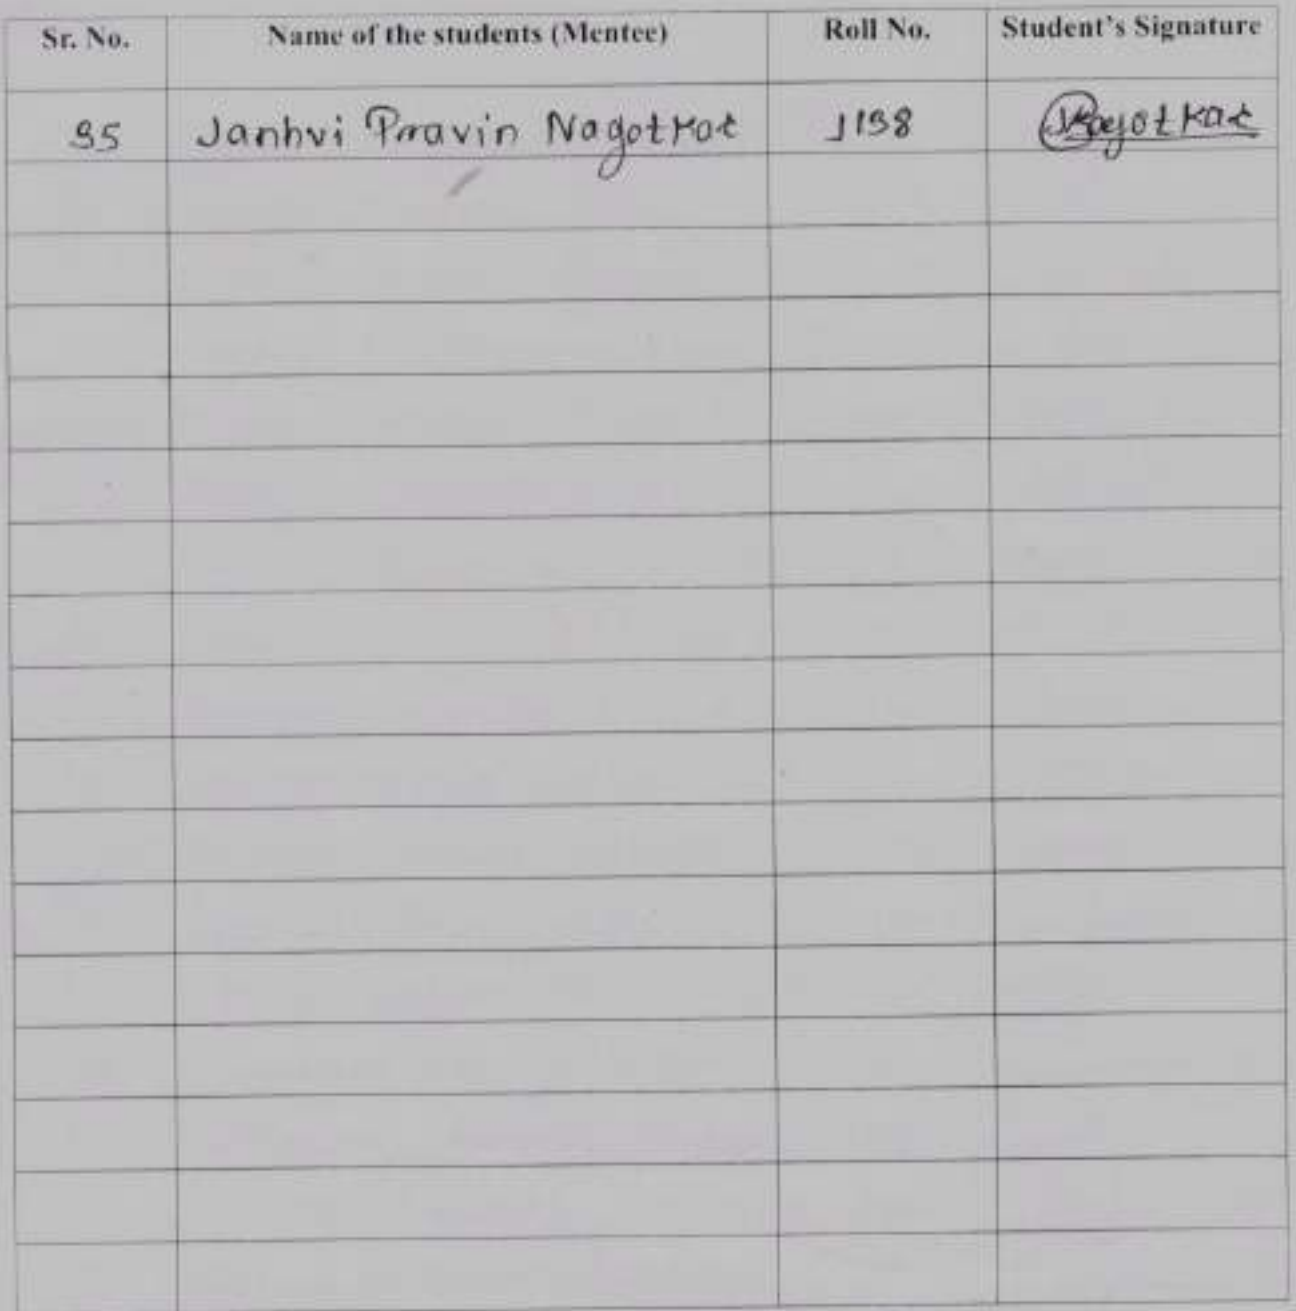 Sr. No. Name of the students (Mentee) Roll No. Student's Signature
35 Janhvi Pravin Nagotkar J138